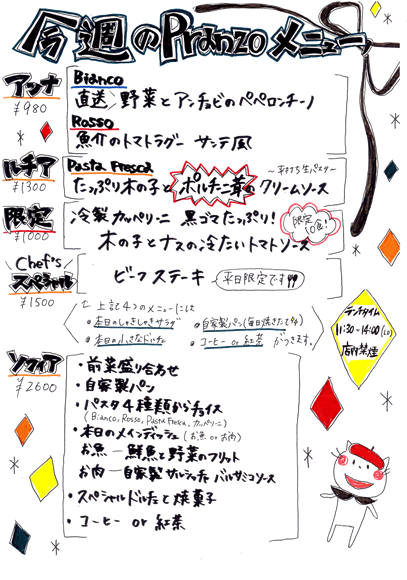 今週のPranzoメニュー
アンナ
¥980
Bianco
直送 野菜とアンチョビのペペロンチーノ
Rosso
魚介のトマトラグー サンテ風
ルチア
¥1300
Pasta Fresca
〜平打ち生パスタ〜
たっぷり木の子とポルチーニ茸のクリームソース
限定
¥1000
冷製カッペリーニ 黒ゴマたっぷり!
木の子とナスの冷たいトマトソース
限定
10食!
Chef's
スペシャル
¥1500
ビーフステーキ
平日限定です
上記4つのメニューには
・本日のしゃきしゃきサラダ
・自家製パン(毎日焼きたて)
・本日の小さなドルチェ
・コーヒー or 紅茶 がつきます。
ランチタイム
11:30~14:00(LO)
店内禁煙
ソフィア
¥2600
・前菜盛り合わせ
・自家製パン
・パスタ4種類からチョイス
(Bianco, Rosso, Pasta Fresca, カッペリーニ)
・本日のメインディッシュ(お魚 or お肉)
お魚 ー 鮮魚と野菜のフリット
お肉 ー 自家製サルシッチャ バルサミコソース
・スペシャルドルチェと焼菓子
・コーヒー or 紅茶